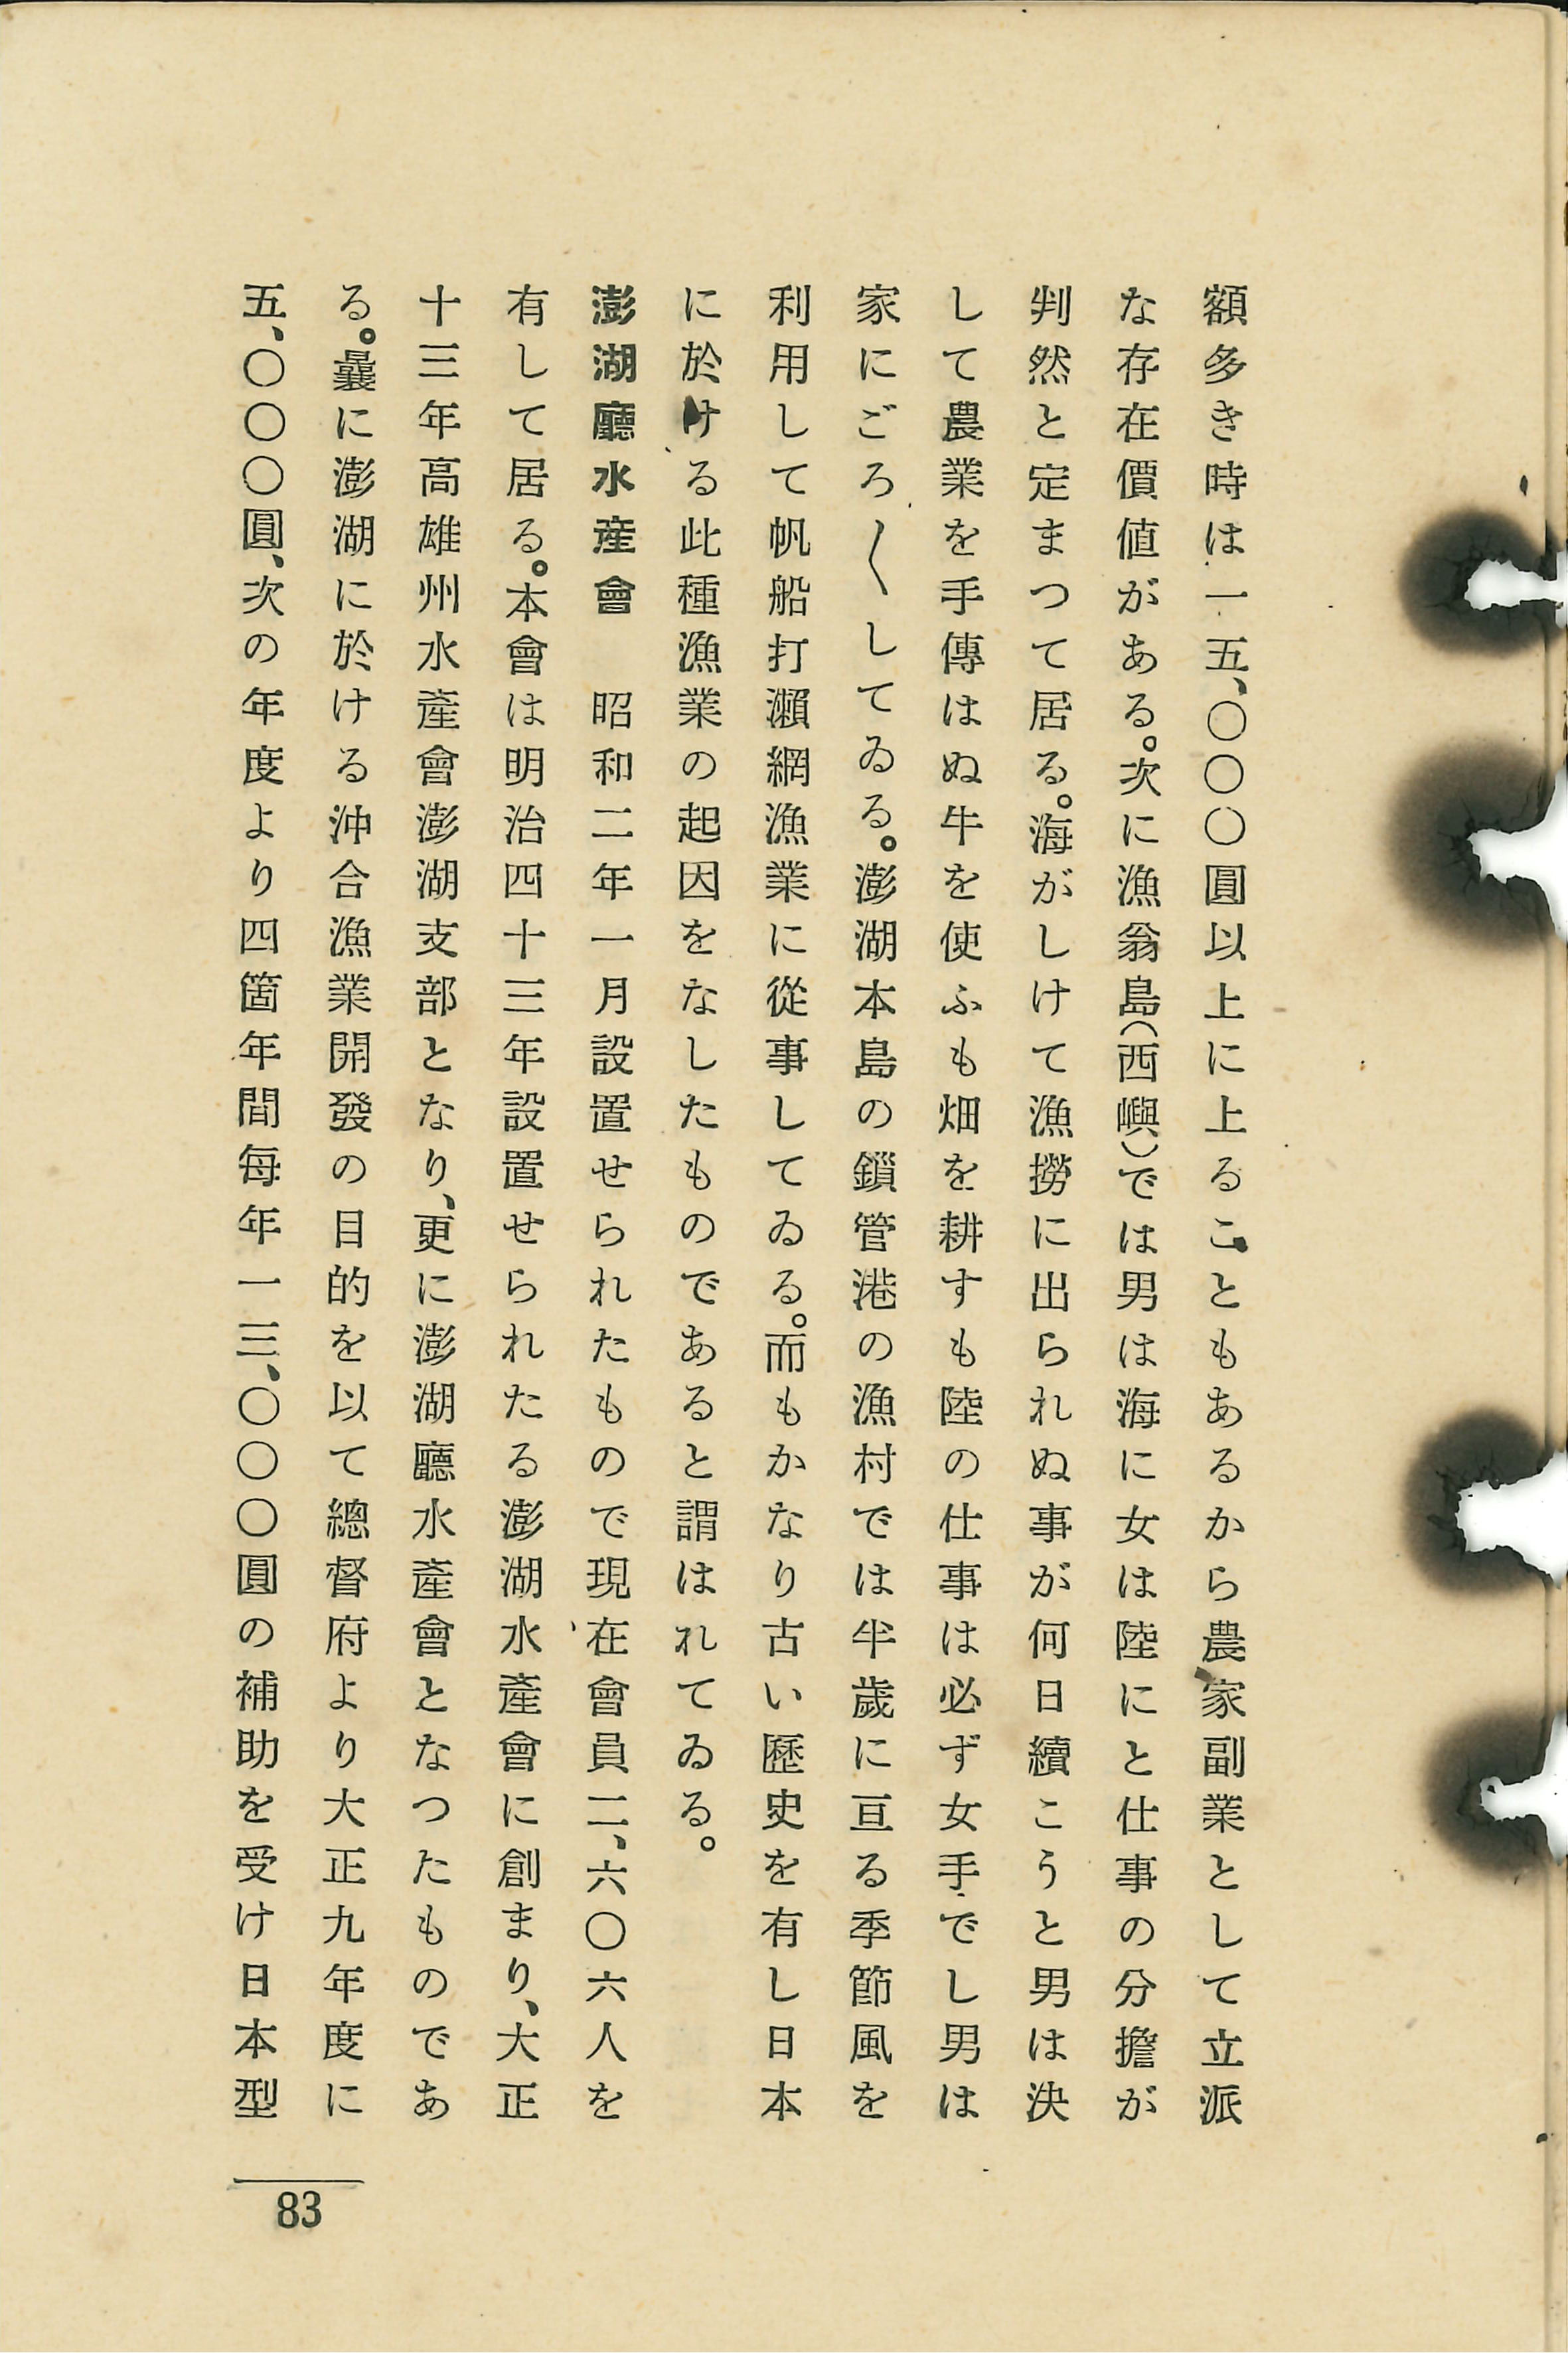 額多き時は一五、〇〇〇圓以上に上ることもあるから農家副業として立派
な存在價値がある。次に漁翁島(西嶼)では男は海に女は陸にと仕事の分擔が
判然と定まつて居る。海がしけて漁撈に出られぬ事が何日續こうと男は決
して農業を手傳はぬ牛を使ふも畑を耕すも陸の仕事は必ず女手でし男は
家にごろ〱してゐる。澎湖本島の鎖管港の漁村では半歲に亘る季節風を
利用して帆船打瀨網漁業に從事してゐる。而もかなり古い歷史を有し日本
に於ける此種漁業の起因をなしたものであると謂はれてゐる。
澎湖廳水産會　昭和二年一月設置せられたもので現在會員二、六〇六人を
有して居る。本會は明治四十三年設置せられたる澎湖水產會に創まり、大正
十三年高雄州水產會澎湖支部となり、更に澎湖廳水產會となつたものであ
る。曩に澎湖に於ける沖合漁業開發の目的を以て總督府より大正九年度に
五、〇〇〇圓、次の年度より四箇年間每年一三、〇〇〇圓の補助を受け日本型
83